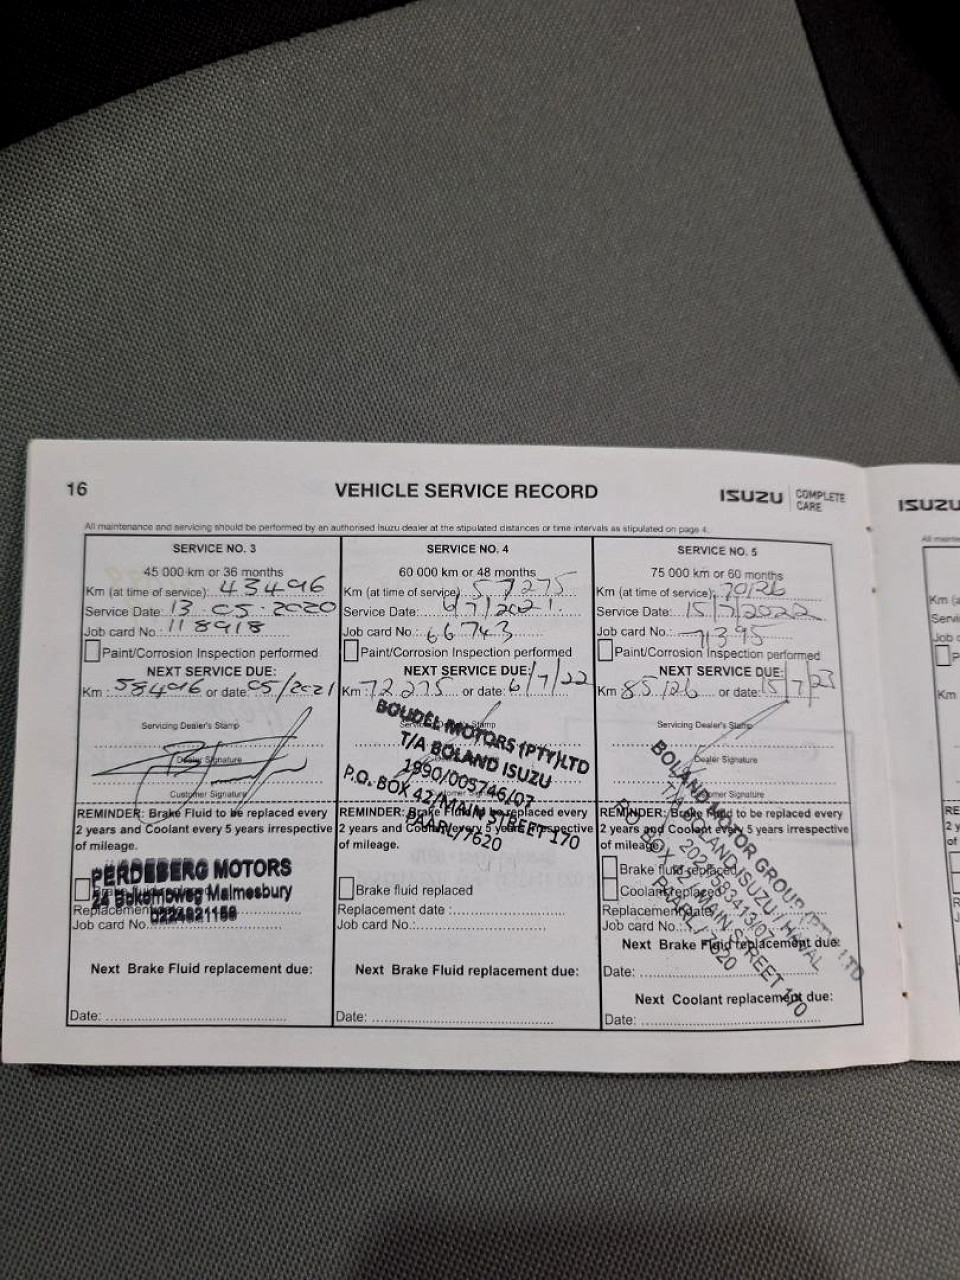 16
VEHICLE SERVICE RECORD
ISUZU COMPLETE CARE
ISUZU
All maintenance and servicing should be performed by an authorised Isuzu dealer at the stipulated distances or time intervals as stipulated on page 4.
SERVICE NO. 3
45 000 km or 36 months
Km (at time of service): 43496
Service Date: 13.05.2020
Job card No.: 118918
Paint/Corrosion Inspection performed
NEXT SERVICE DUE:
Km: 58496 or date: 05/2021
Servicing Dealer's Stamp
Dealer Signature
Customer Signature
REMINDER: Brake Fluid to be replaced every
2 years and Coolant every 5 years irrespective
of mileage.
PERDEBERG MOTORS
24 Bokomoweg Malmesbury
0224821156
Brake fluid replaced
Replacement
Job card No.
Next Brake Fluid replacement due:
Date:
SERVICE NO. 4
60 000 km or 48 months
Km (at time of service) 57275
Service Date: 6/7/2021.
Job card No.: 66743
Paint/Corrosion Inspection performed
NEXT SERVICE DUE:
Km: 72 275 or date: 6/7/22
BOUDEL MOTORS (PTY)LTD
T/A BOLAND ISUZU
1990/005746/07
P.O. BOX 42/MAIN STREET 170
PAARL/7620
REMINDER: Brake Fluid to be replaced every
2 years and Coolant every 5 years irrespective
of mileage.
Brake fluid replaced
Replacement date :
Job card No.:
Next Brake Fluid replacement due:
Date:
SERVICE NO. 5
75 000 km or 60 months
Km (at time of service): 70126
Service Date: 15/7/2022
Job card No.: 71395
Paint/Corrosion Inspection performed
NEXT SERVICE DUE:
Km 85126 or date: 15/7/23
Servicing Dealer's Stamp
Dealer Signature
Customer Signature
BOLAND MOTOR GROUP (PTY) LTD
T/A BOLAND ISUZU / HAVAL
PO BOX 42 MAIN STREET 170
PAARL / 7620
REMINDER: Brake Fluid to be replaced every
2 years and Coolant every 5 years irrespective
of mileage.
Brake fluid replaced
Coolant replaced
Replacement date
Job card No.:
Next Brake Fluid replacement due:
Date:
Next Coolant replacement due:
Date: